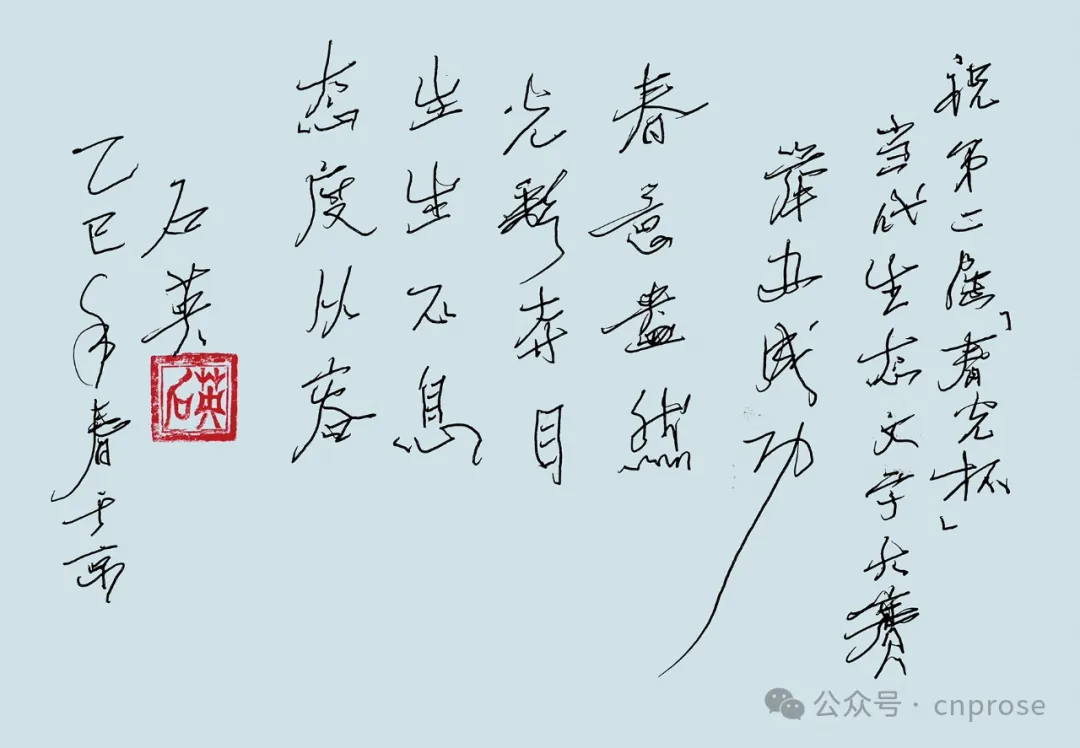 祝第二届「春光杯」
当代生态文学大赛
举办成功
春意盎然
光彩夺目
生生不息
态度从容
石英
乙巳年春于京
石英
公众号·cnprose